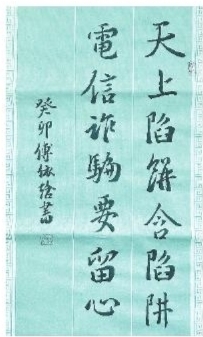 天上陷餅含陷阱
電信诈騙要留心
癸卯傅依蓓書